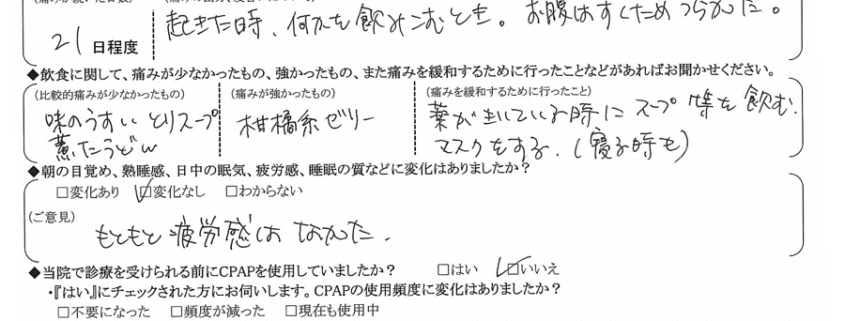 21 日程度
起きた時、何かを飲みこむとき。お腹はすくためつらかった。
◆飲食に関して、痛みが少なかったもの、強かったもの、また痛みを緩和するために行ったことなどがあればお聞かせください。
(比較的痛みが少なかったもの)
味のうすいとりスープ
煮たうどん
(痛みが強かったもの)
柑橘系ゼリー
(痛みを緩和するために行ったこと)
薬が効いている時にスープ等を飲む。
マスクをする。(寝る時も)
◆朝の目覚め、熟睡感、日中の眠気、疲労感、睡眠の質などに変化はありましたか?
□変化あり ☑変化なし □わからない
(ご意見)
もともと疲労感はなかった。
◆当院で診療を受けられる前にCPAPを使用していましたか? □はい ☑いいえ
・『はい』にチェックされた方にお伺いします。CPAPの使用頻度に変化はありましたか?
□不要になった □頻度が減った □現在も使用中